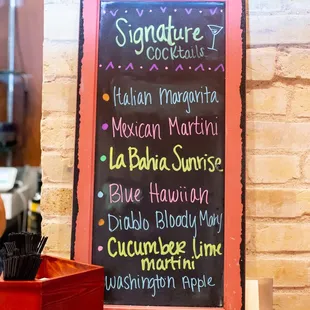 Signature
COCKTAILS
Italian Margarita
Mexican Martini
La Bahia Sunrise
Blue Hawiian
Diablo Bloody Mary
Cucumber Lime
martini
Washington Apple